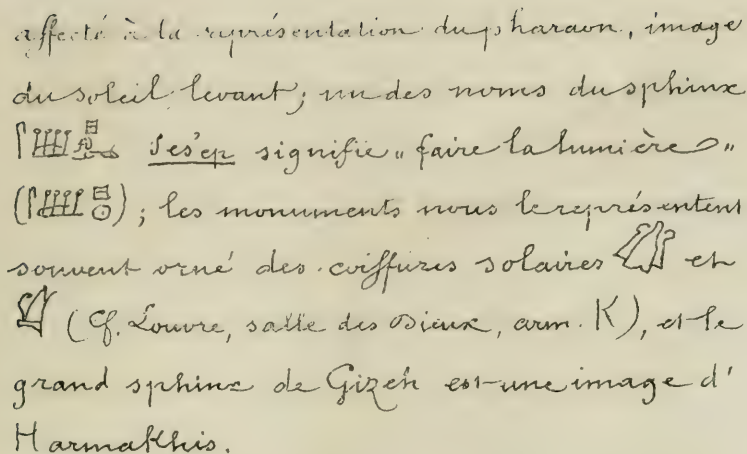 affecté à la représentation du pharaon, image
du soleil levant; un des noms du sphinx
Ses'ep signifie „ faire la lumière "
( ); les monuments nous le représentent
souvent orné des coiffures solaires et
(Cf. Louvre, salle des Dieux, arm. K), et le
grand sphinx de Gizeh est une image d'
Harmakhis.